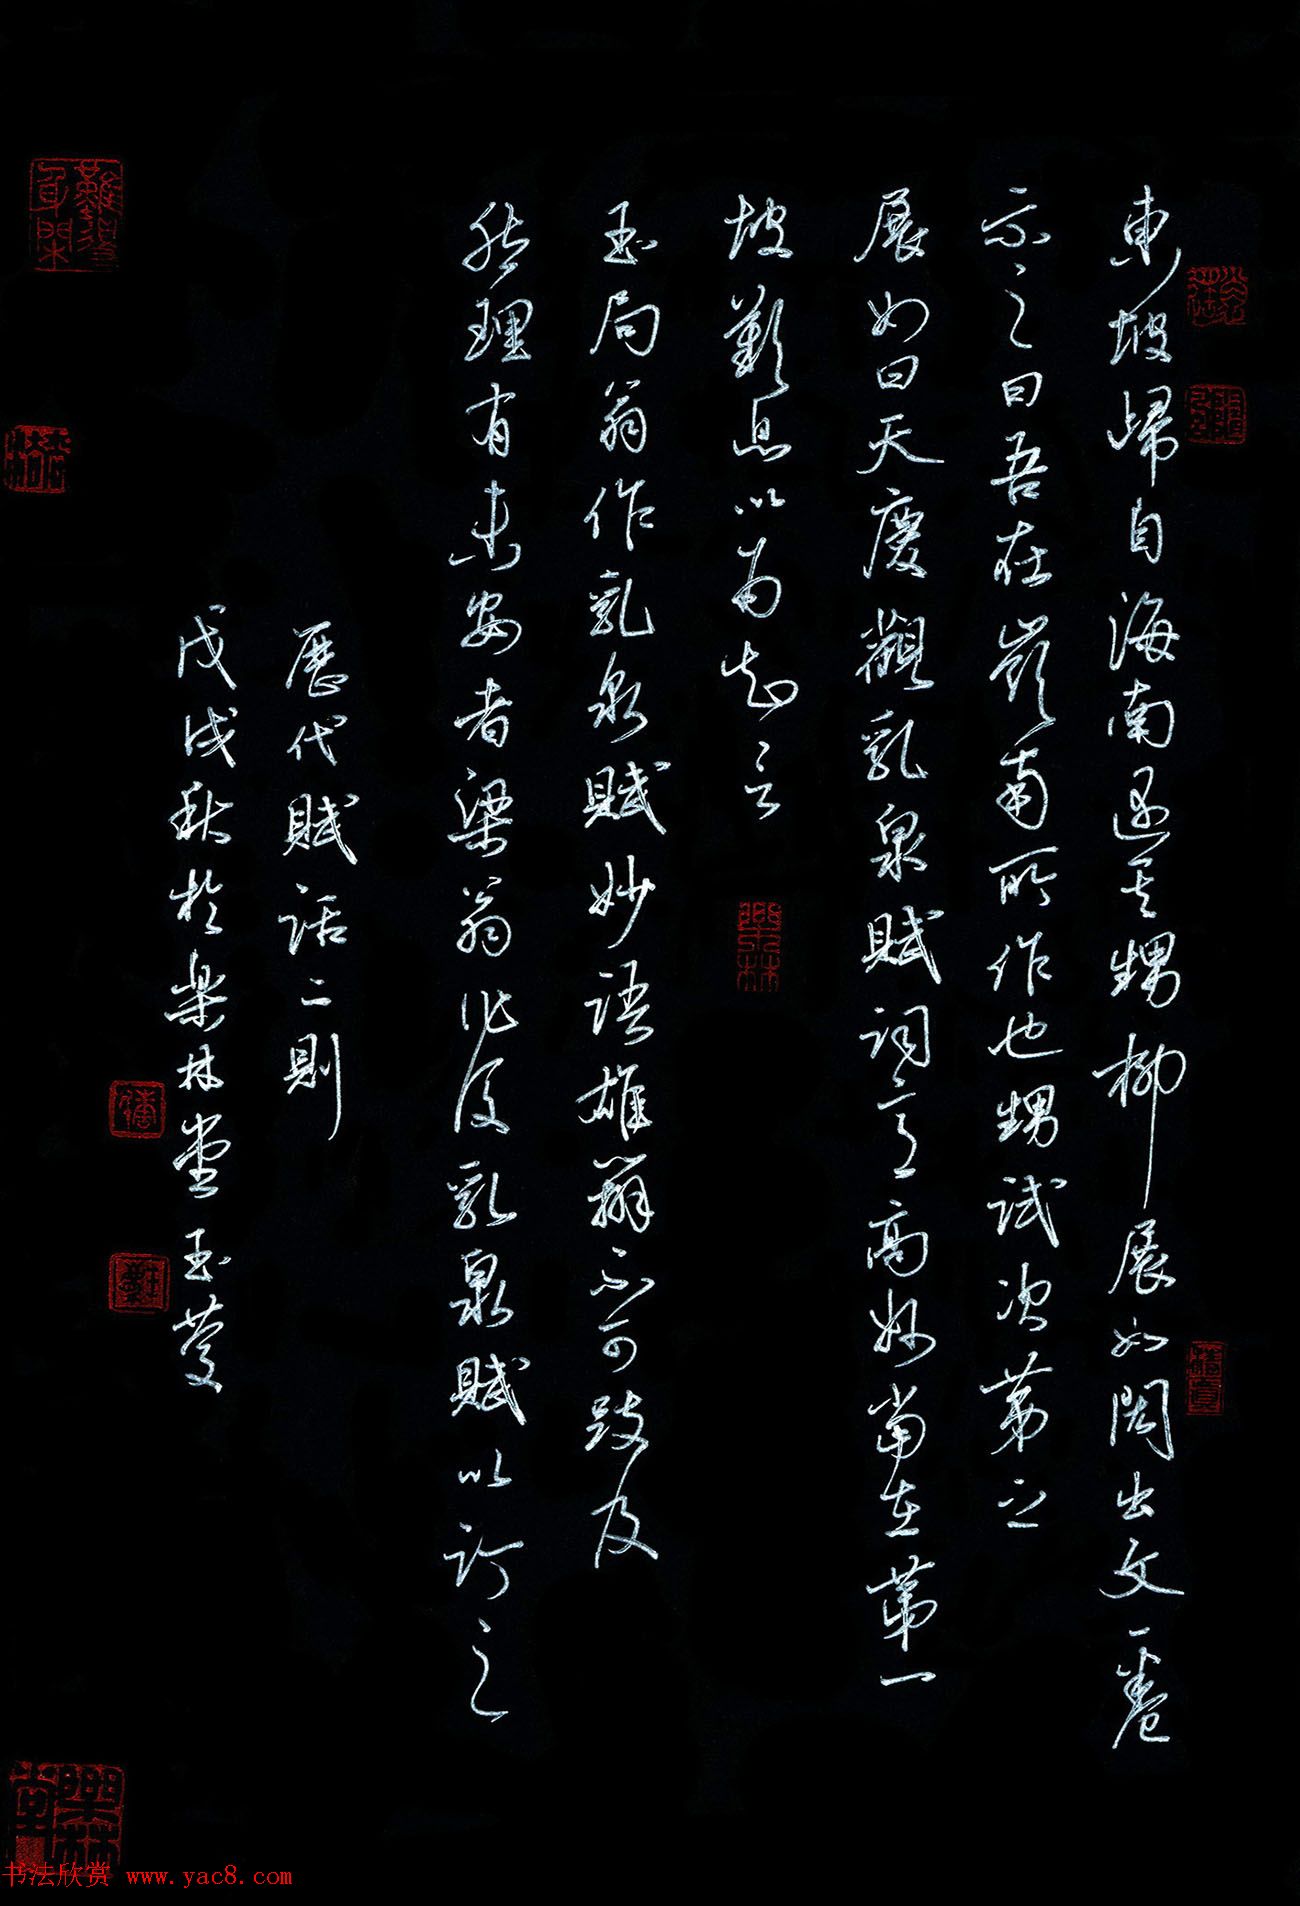 東坡歸自海南遇其甥柳展如閎出文一卷
示之曰吾在嶺南所作也甥試次第之
展如曰天慶觀乳泉賦詞意高妙當在第一
坡歎息以為知言
玉局翁作乳泉賦妙語雄辯不可跂及
然理有未安者梁翁作後乳泉賦以訂之
歷代賦話二則
戊戌秋於樂林堂玉蔓
书法欣赏 www.yac8.com